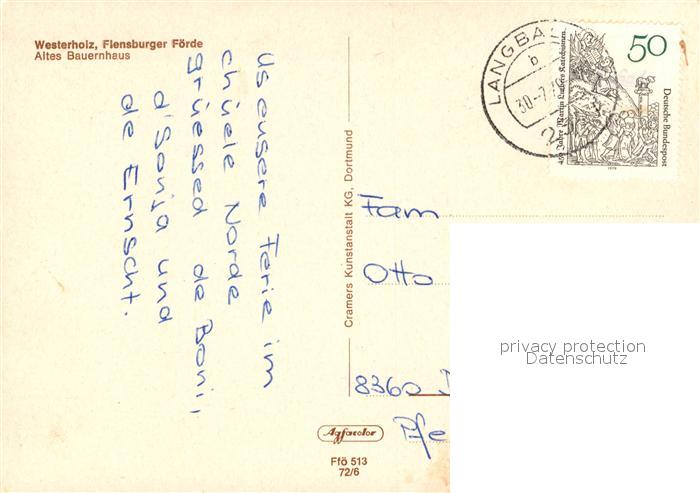 Westerholz, Flensburger Förde
Altes Bauernhaus
us eusere Ferie im
chüele Norde
grüessed de Boni,
d'Sonja und
de Ernscht.
Cramers Kunstanstalt KG, Dortmund
LANGBAL
b
30.-7.79
2
50
Deutsche Bundespost
450 Jahre Martin Luthers Katechismen
1979
Fam
Otto
8360
Pfe
privacy protection
Datenschutz
Agfacolor
Ffö 513
72/6